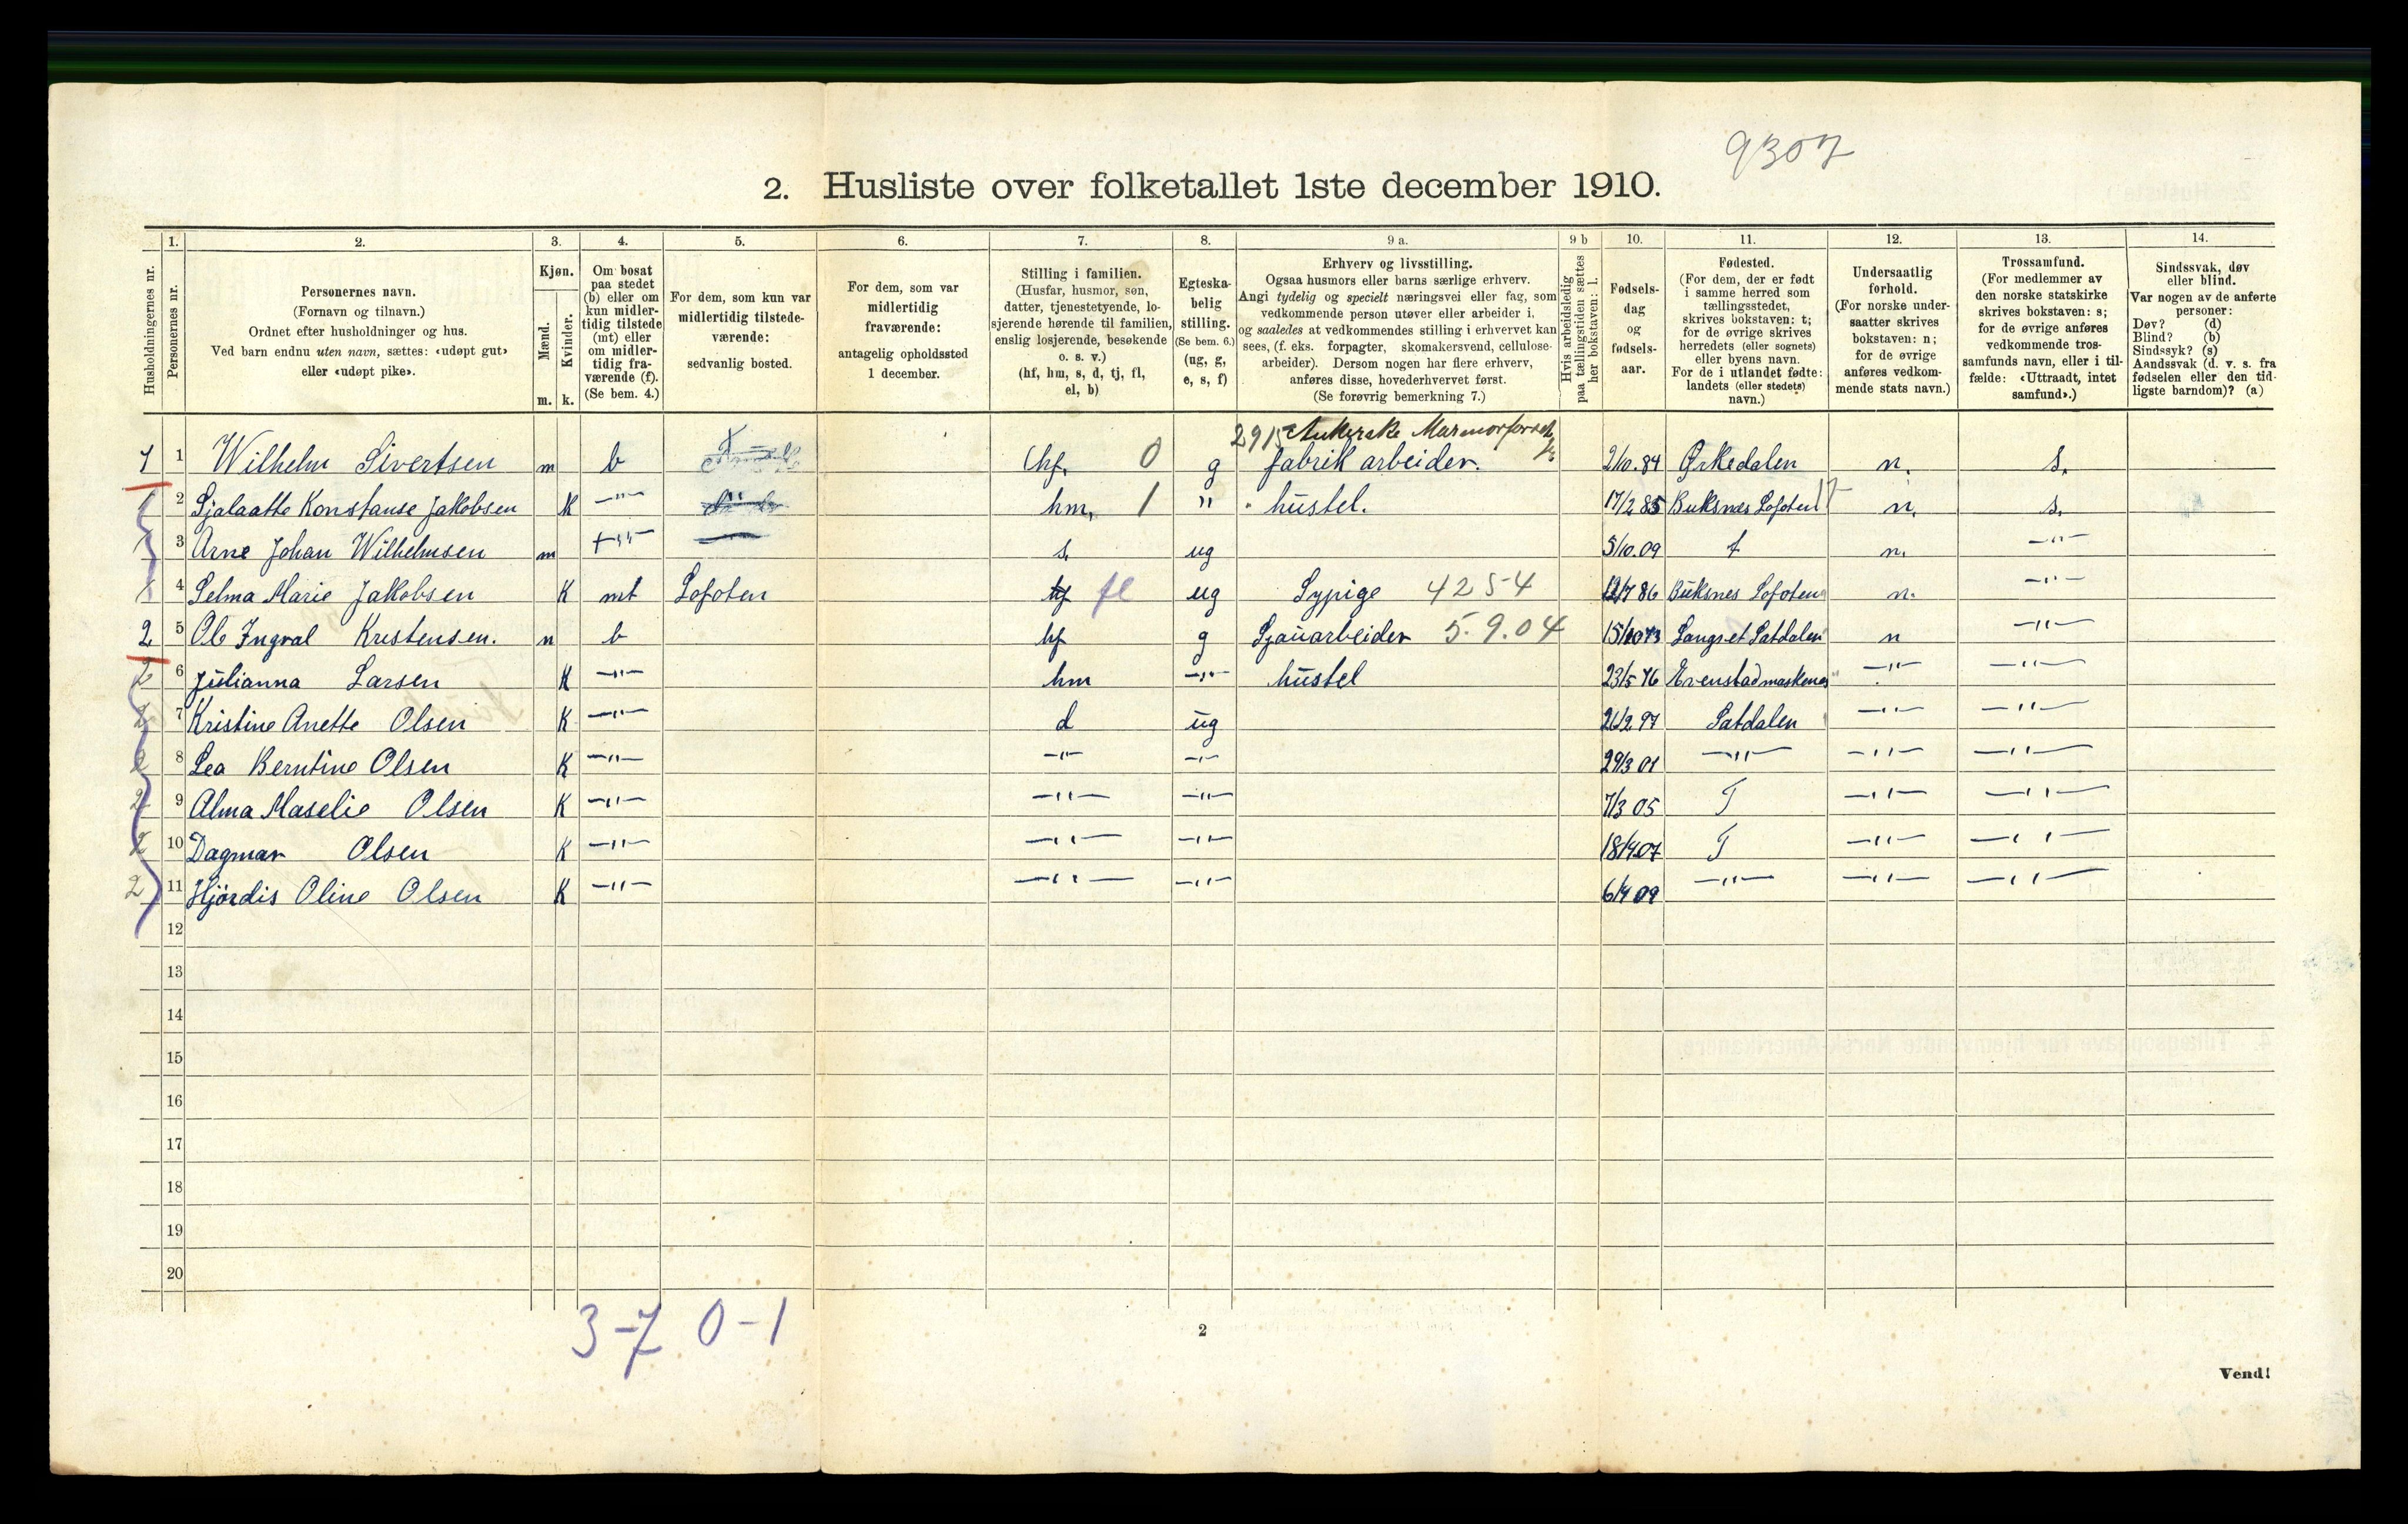 9307
2. Husliste over folketallet 1ste december 1910.
Husholdningernes nr.
1. Personernes nr.
2. Personernes navn.
(Fornavn og tilnavn.)
Ordnet efter husholdninger og hus.
Ved barn endnu uten navn, sættes: «udøpt gut»
eller «udøpt pike».
3. Kjøn.
Mænd. Kvinder.
m. k.
4. Om bosat
paa stedet
(b) eller om
kun midler-
tidig tilstede
(mt) eller
om midler-
tidig fra-
værende (f).
(Se bem. 4.)
5. For dem, som kun var
midlertidig tilstede-
værende:
sedvanlig bosted.
6. For dem, som var
midlertidig
fraværende:
antagelig opholdssted
1 december.
7. Stilling i familien.
(Husfar, husmor, søn,
datter, tjenestetyende, lo-
sjerende hørende til familien,
enslig losjerende, besøkende
o. s. v.)
(hf, hm, s, d, tj, fl,
el, b)
8. Egteska-
belig
stilling.
(Se bem. 6.)
(ug, g,
e, s, f)
9 a. Erhverv og livsstilling.
Ogsaa husmors eller barns særlige erhverv.
Angi tydelig og specielt næringsvei eller fag, som
vedkommende person utøver eller arbeider i,
og saaledes at vedkommendes stilling i erhvervet kan
sees, (f. eks. forpagter, skomakersvend, cellulose-
arbeider). Dersom nogen har flere erhverv,
anføres disse, hovederhvervet først.
(Se forøvrig bemerkning 7.)
9 b Hvis arbeidsledig
paa tællingstiden sættes
her bokstaven: l.
10. Fødsels-
dag
og
fødsels-
aar.
11. Fødested.
(For dem, der er født
i samme herred som
tællingsstedet,
skrives bokstaven: t;
for de øvrige skrives
herredets (eller sognets)
eller byens navn.
For de i utlandet fødte:
landets (eller stedets)
navn.)
12. Undersaatlig
forhold.
(For norske under-
saatter skrives
bokstaven: n;
for de øvrige
anføres vedkom-
mende stats navn.)
13. Trossamfund.
(For medlemmer av
den norske statskirke
skrives bokstaven: s;
for de øvrige anføres
vedkommende tros-
samfunds navn, eller i til-
fælde: «Uttraadt, intet
samfund».)
14. Sindssvak, døv
eller blind.
Var nogen av de anførte
personer:
Døv? (d)
Blind? (b)
Sindssyk? (s)
Aandssvak (d. v. s. fra
fødselen eller den tid-
ligste barndom)? (a)
2915 Ankerske Marmorforret.
1 1 Wilhelm Sivertsen m b hf. 0 g fabrik arbeider. 2/10.84 Ørkedalen n. s.
1 2 Sjalaatte Konstanse Jakobsen K —"— hm, 1 " hustel. 17/2 85 Buksnes Lofoten 17 n. s.
1 3 Arne Johan Wilhelmsen m —"— s. ug 5/10.09 t n. —"—
1 4 Selma Marie Jakobsen K mt Lofoten fl ug Sypige 4254 12/7 86 Buksnes Lofoten n. —"—
2 5 Ole Ingval Kristensen. m b hf g Sjauarbeider 5.9.04 15/10 73 Langset Satdalen n —"—
2 6 Julianna Larsen K —"— hm —"— hustel 23/5 76 Evenstadmaskenes —"— —"—
2 7 Kristine Anette Olsen K —"— d ug 26/2 97 Satdalen —"— —"—
2 8 Lea Berntine Olsen K —"— —"— —"— 29/3 01 —"— —"— —"—
2 9 Alma Maselie Olsen K —"— —"— —"— 7/3 05 T —"— —"—
2 10 Dagmar Olsen K —"— —"— —"— 18/4 07 T —"— —"—
2 11 Hjördis Oline Olsen K —"— —"— —"— 6/4 09 —"— —"— —"—
12
13
14
15
16
17
18
19
20
3-7 0-1
2
Vend!